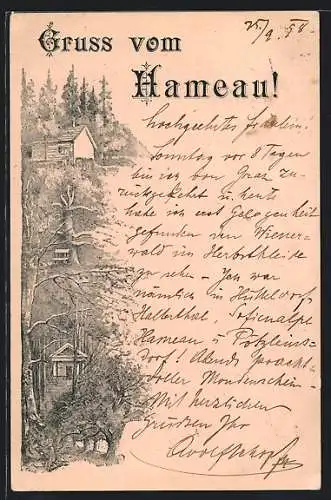 25/9. 98.
Gruss vom
Hameau!
Hochgeehrtes Fräulein!
Sonntag vor 8 Tagen
bin ich von Graz zu-
rückgekehrt u. heute
habe ich erst Gelegenheit
gefunden den Wiener-
wald im Herbstkleide
zu sehen – Ich war
nämlich in Hütteldorf
Halterthal, Sofienalpe
Hameau u. Pötzleins-
dorf! Abends pracht-
voller Mondenschein –
Mit herzlichen
Grüssen Ihr
Adolf